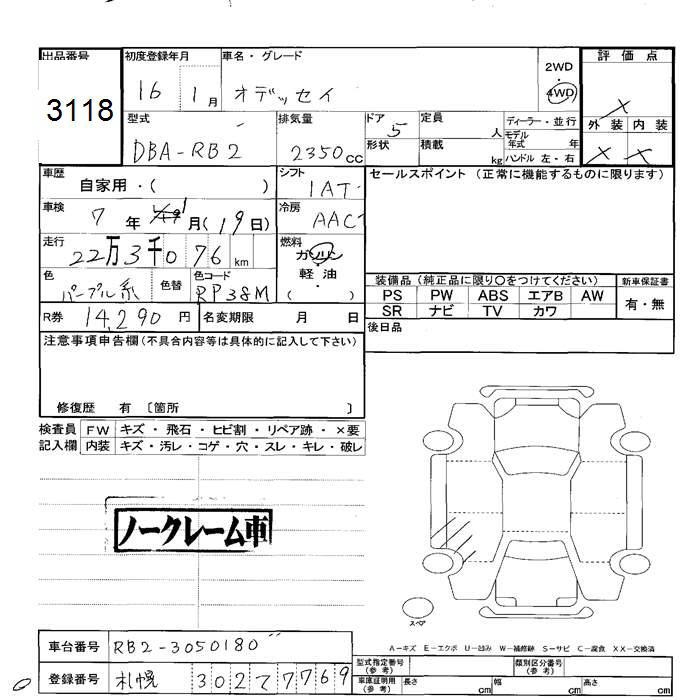 出品番号 初度登録年月 車名・グレード 2WD・4WD 評価点
3118 16 1月 オデッセイ ×
型式 排気量 ドア 定員 ディーラー・並行 外装 内装
DBA-RB2 2350cc 5 人 モデル年式 年 × ×
形状 積載 kg ハンドル 左・右
車歴 シフト セールスポイント(正常に機能するものに限ります)
自家用・( ) IAT
車検 7年 1月(19日) 冷房 AAC
走行 22万3千076km 燃料 ガソリン・軽油 ( )
色 パープル系 色替 色コード RP38M
装備品(純正品に限り○をつけてください) 新車保証書
PS PW ABS エアB AW 有・無
SR ナビ TV カワ
R券 14,290円 名変期限 月 日 後日品
注意事項申告欄(不具合内容等は具体的に記入して下さい)
修復歴 有 〔箇所 〕
検査員 FW キズ・飛石・ヒビ割・リペア跡・×要
記入欄 内装 キズ・汚レ・コゲ・穴・スレ・キレ・破レ
ノークレーム車
スペア
A-キズ E-エクボ U-凹み W-補修跡 S-サビ C-腐食 XX-交換済
車台番号 RB2-3050180
型式指定番号(参考) 類別区分番号(参考)
登録番号 札幌 302 7769
車庫証明用(参考) 長さ cm 幅 cm 高さ cm